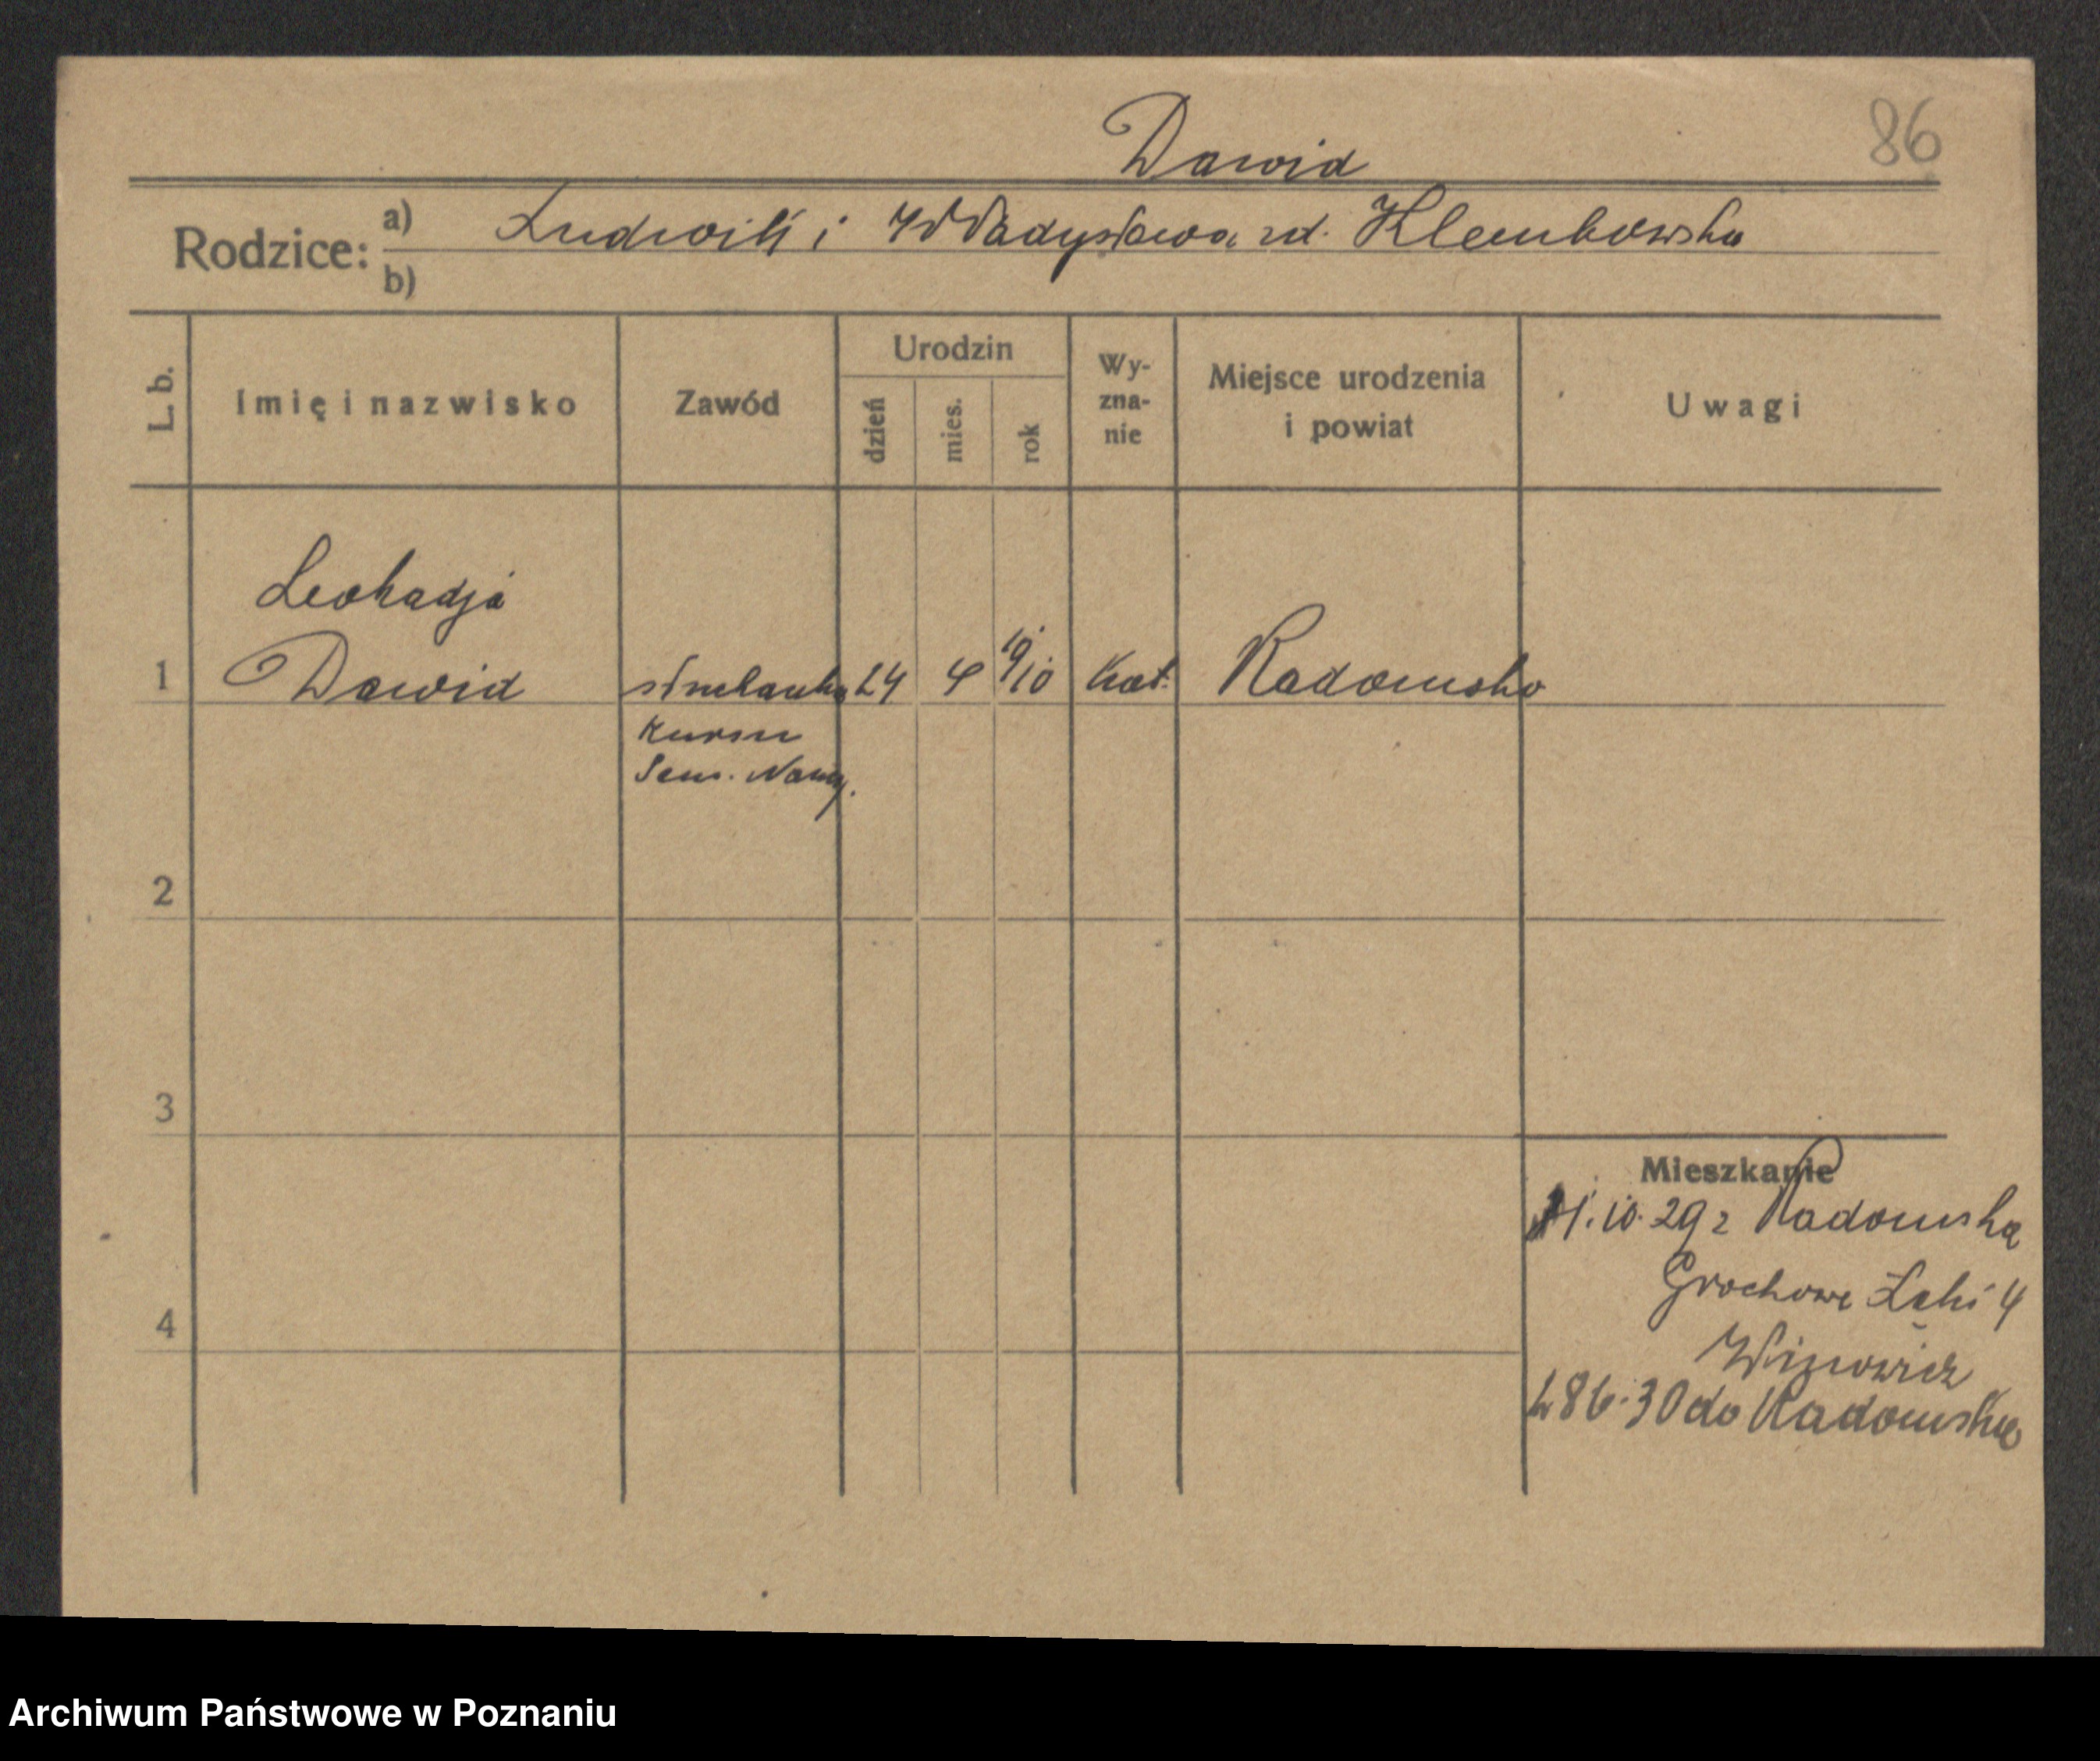 86
Dawid
Rodzice: a) Ludwik i Władysława zd. Klembowska
b)
L. b.
Imię i nazwisko
Zawód
Urodzin
dzień
mies.
rok
Wy-
zna-
nie
Miejsce urodzenia
i powiat
Uwagi
Leokadja
1 Dawid słuchaczka 24 4 1910 kat. Radomsko
Kursu
Sem. Nauq.
2
3
Mieszkanie
1.10.29 z Radomska
Grochowe Łąki 4
4
86.30 do Radomska
Archiwum Państwowe w Poznaniu